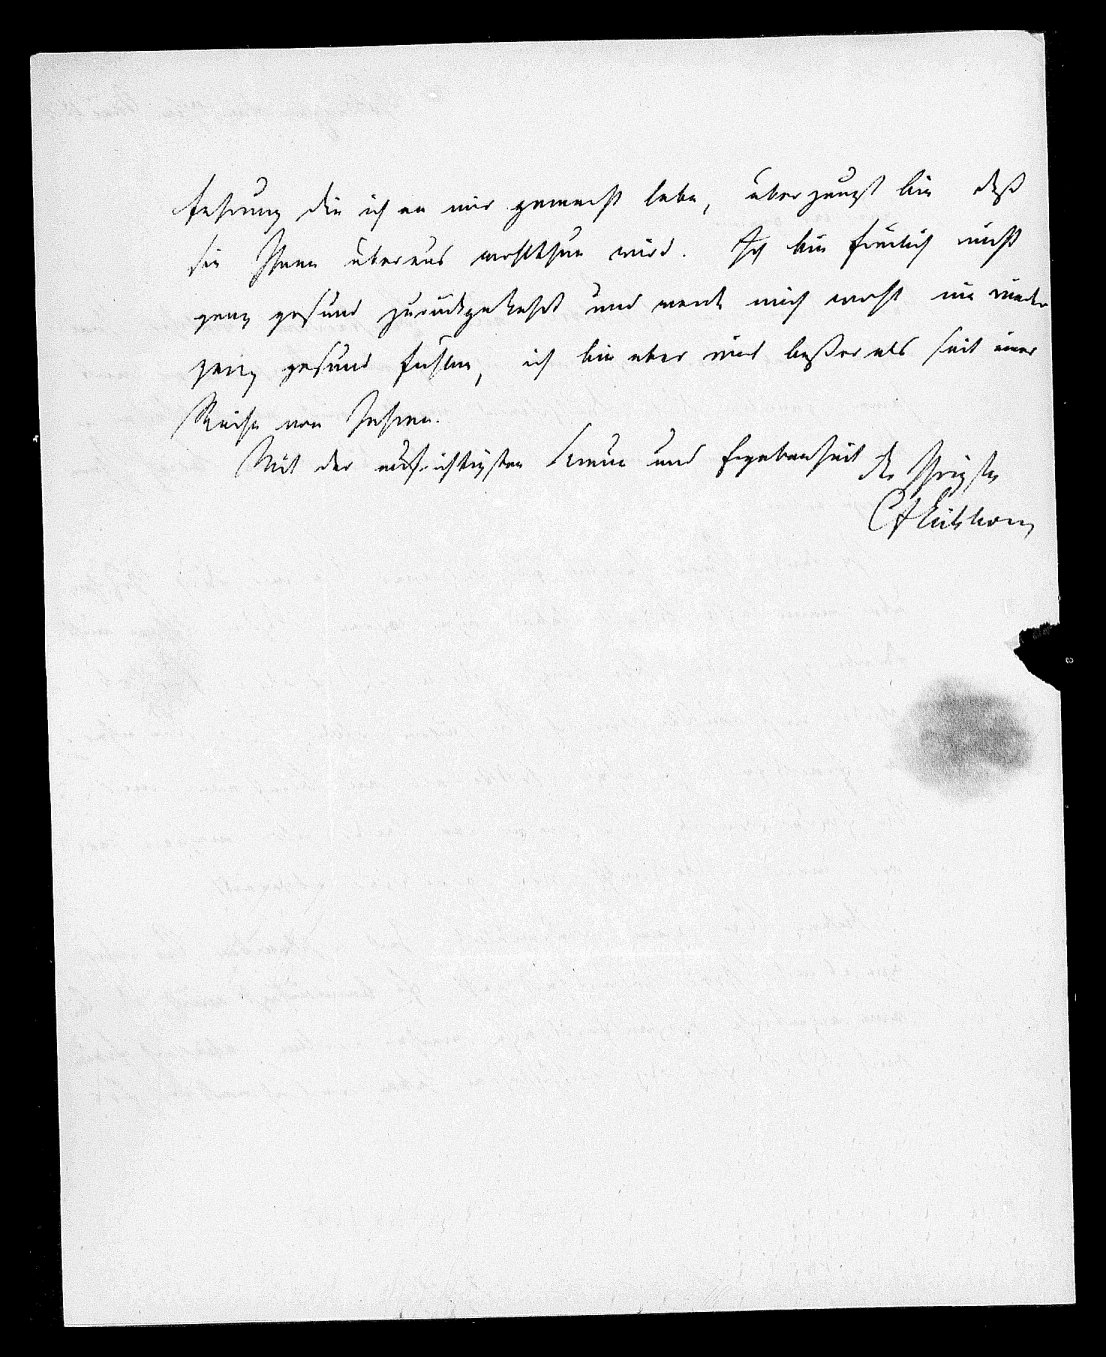 fahrung die ich an mir gemacht habe, überzeugt bin daß
sie Ihnen überaus wohlthun wird. Ich bin freilich nicht
ganz gesund zurückgekehrt und werde mich wohl nie wieder
ganz gesund fühlen, ich bin aber viel besser als seit einer
Reihe von Jahren.
Mit der aufrichtigsten Treue und Ergebenheit der Ihrigste
CFEichhorn